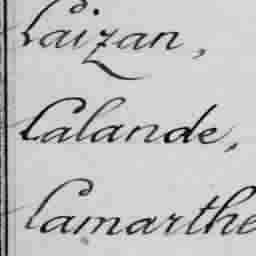 Laizan,
Lalande,
Lamarthe